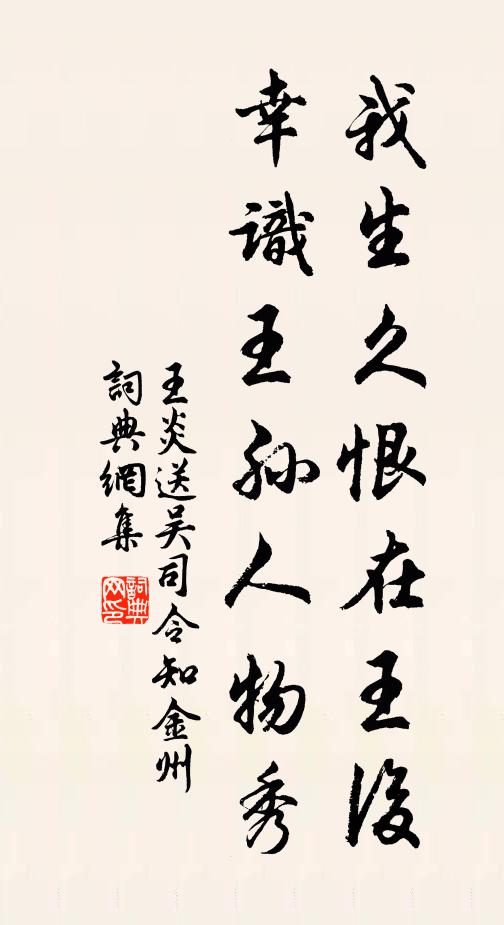 我生久恨在王後
幸識王孫人物秀
王炎送吴司令知金州
詞典網集
詞典網印